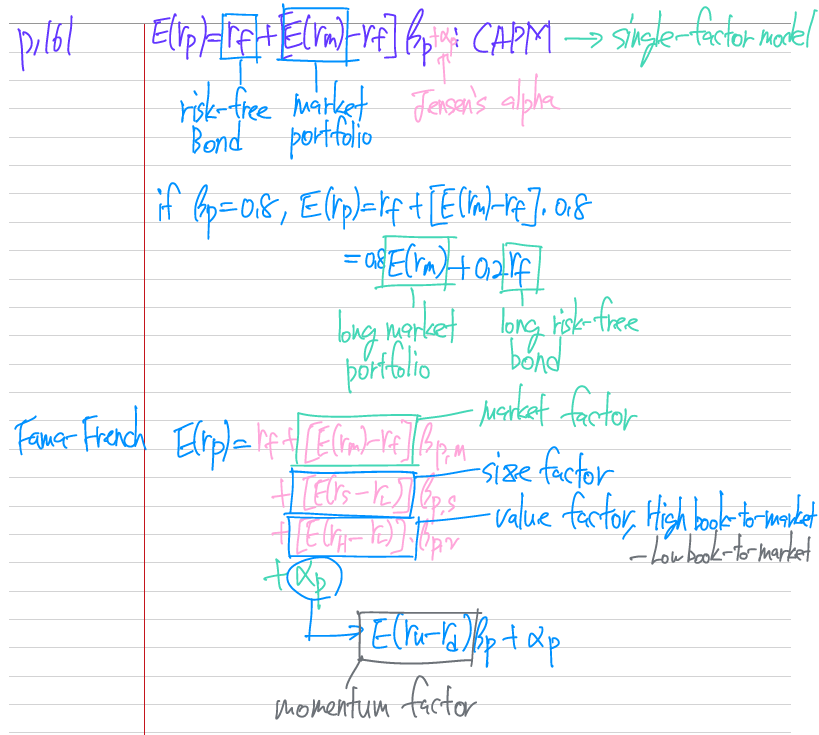 p.161 E(rp)=rf+[E(rm)-rf]βp+αp: CAPM → single-factor model
risk-free Bond market portfolio Jensen's alpha
if βp=0.8, E(rp)=rf+[E(rm)-rf]·0.8
=0.8E(rm)+0.2rf
long market portfolio long risk-free bond
Fama-French E(rp)=rf+[E(rm)-rf]βp,m market factor
+[E(rs-rL)]βp,s size factor
+[E(rH-rL)]·βp,v value factor, High book-to-market
-Low book-to-market
+αp
→ E(ru-rd)βp+αp
momentum factor